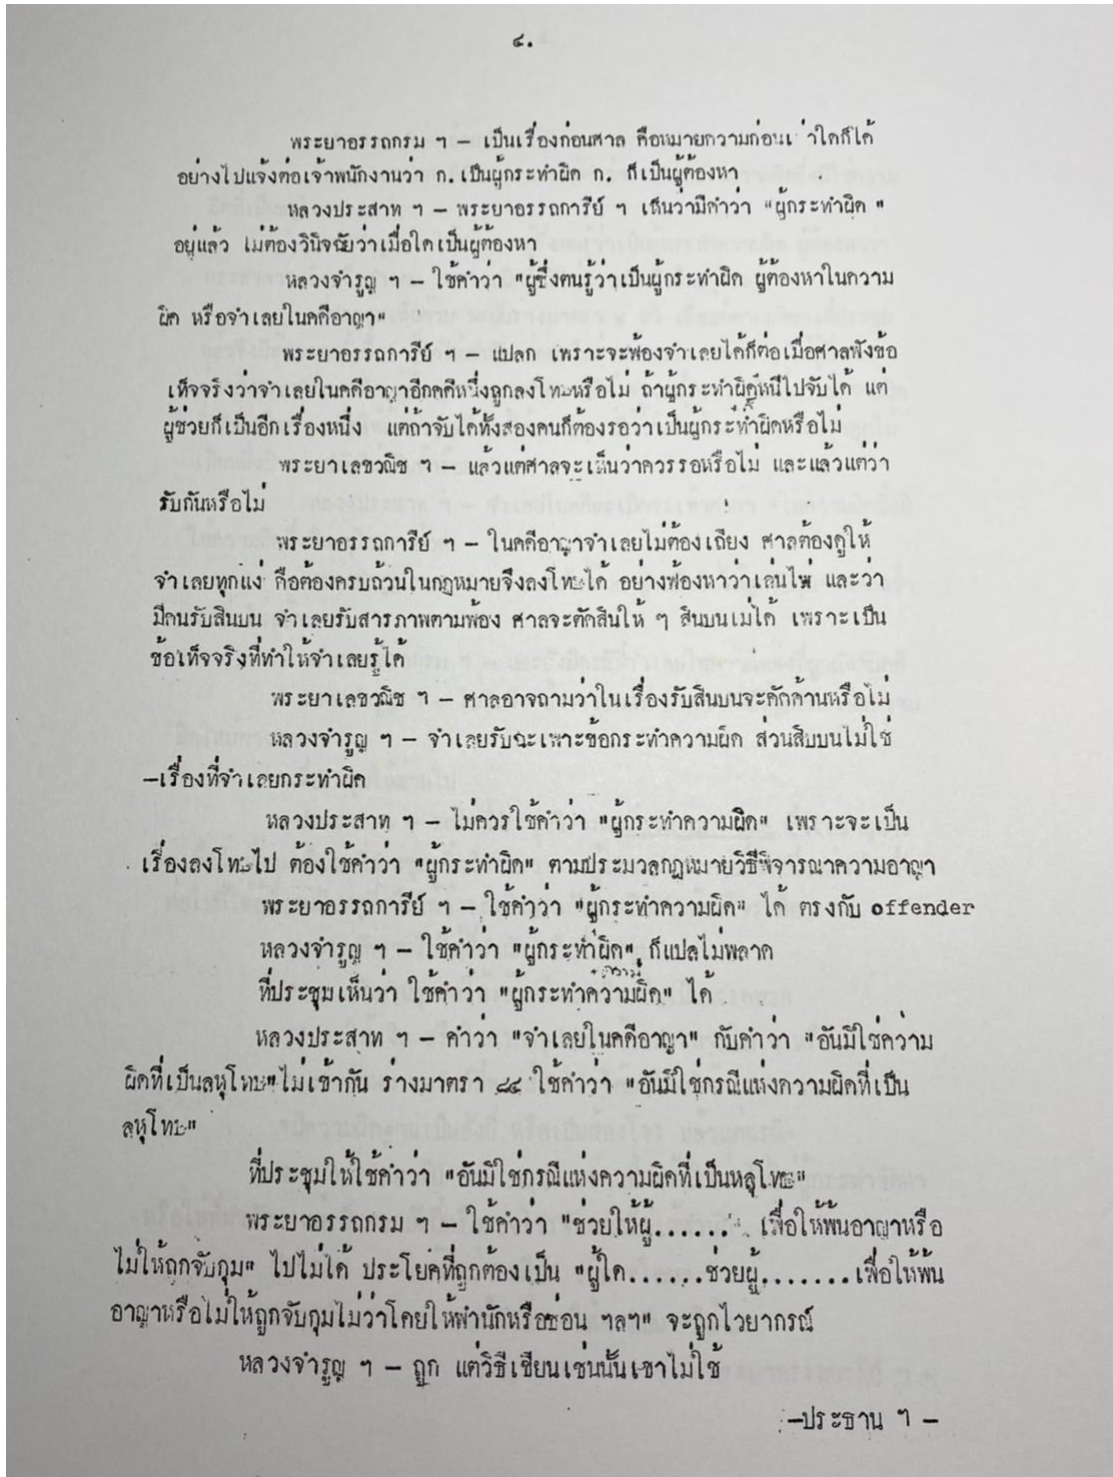 ๔.
พระยาอรรถกรม ฯ – เป็นเรื่องก่อนศาล คือหมายความก่อนเ่าใดก็ได้
อย่างไปแจ้งต่อเจ้าพนักงานว่า ก. เป็นผู้กระทำผิด ก. ก็เป็นผู้ต้องหา
หลวงประสาท ฯ – พระยาอรรถการีย์ ฯ เห็นว่ามีคำว่า "ผู้กระทำผิด"
อยู่แล้ว ไม่ต้องวินิจฉัยว่าเมื่อใดเป็นผู้ต้องหา
หลวงจำรูญ ฯ – ใช้คำว่า "ผู้ซึ่งตนรู้ว่าเป็นผู้กระทำผิด ผู้ต้องหาในความ
ผิด หรือจำเลยในคดีอาญา"
พระยาอรรถการีย์ ฯ – แปลก เพราะจะฟ้องจำเลยได้ก็ต่อเมื่อศาลฟังข้อ
เท็จจริงว่าจำเลยในคดีอาญาอีกคดีหนึ่งถูกลงโทษหรือไม่ ถ้าผู้กระทำผิดหนีไปจับได้ แต่
ผู้ช่วยก็เป็นอีกเรื่องหนึ่ง แต่ถ้าจับได้ทั้งสองคนก็ต้องรอว่าเป็นผู้กระทำผิดหรือไม่
พระยาเลขวณิช ฯ – แล้วแต่ศาลจะเห็นว่าควรรอหรือไม่ และแล้วแต่ว่า
รับกันหรือไม่
พระยาอรรถการีย์ ฯ – ในคดีอาญาจำเลยไม่ต้องเถียง ศาลต้องดูให้
จำเลยทุกแง่ คือต้องครบถ้วนในกฎหมายจึงลงโทษได้ อย่างฟ้องหาว่าเล่นไพ่ และว่า
มีคนรับสินบน จำเลยรับสารภาพตามฟ้อง ศาลจะตัดสินให้ ๆ สินบนไม่ได้ เพราะเป็น
ข้อเท็จจริงที่ทำให้จำเลยรู้ได้
พระยาเลขวณิช ฯ – ศาลอาจถามว่าในเรื่องรับสินบนจะคัดค้านหรือไม่
หลวงจำรูญ ฯ – จำเลยรับฉะเพาะข้อกระทำความผิด ส่วนสินบนไม่ใช่
–เรื่องที่จำเลยกระทำผิด
หลวงประสาท ฯ – ไม่ควรใช้คำว่า "ผู้กระทำความผิด" เพราะจะเป็น
เรื่องลงโทษไป ต้องใช้คำว่า "ผู้กระทำผิด" ตามประมวลกฎหมายวิธีพิจารณาความอาญา
พระยาอรรถการีย์ ฯ – ใช้คำว่า "ผู้กระทำความผิด" ได้ ตรงกับ offender
หลวงจำรูญ ฯ – ใช้คำว่า "ผู้กระทำผิด" ก็แปลไม่พลาด
ที่ประชุมเห็นว่า ใช้คำว่า "ผู้กระทำความผิด" ได้
หลวงประสาท ฯ – คำว่า "จำเลยในคดีอาญา" กับคำว่า "อันมิใช่ความ
ผิดที่เป็นลหุโทษ" ไม่เข้ากัน ร่างมาตรา ๘๔ ใช้คำว่า "อันมิใช่กรณีแห่งความผิดที่เป็น
ลหุโทษ"
ที่ประชุมให้ใช้คำว่า "อันมิใช่กรณีแห่งความผิดที่เป็นหลุโทษ"
พระยาอรรถกรม ฯ – ใช้คำว่า "ช่วยให้ผู้...... เพื่อให้พ้นอาญาหรือ
ไม่ให้ถูกจับกุม" ไปไม่ได้ ประโยคที่ถูกต้องเป็น "ผู้ใด......ช่วยผู้.......เพื่อให้พ้น
อาญาหรือไม่ให้ถูกจับกุมไม่ว่าโดยให้พำนักหรือซ่อน ฯลฯ" จะถูกไวยากรณ์
หลวงจำรูญ ฯ – ถูก แต่วิธีเขียนเช่นนั้นเขาไม่ใช้
–ประธาน ฯ –